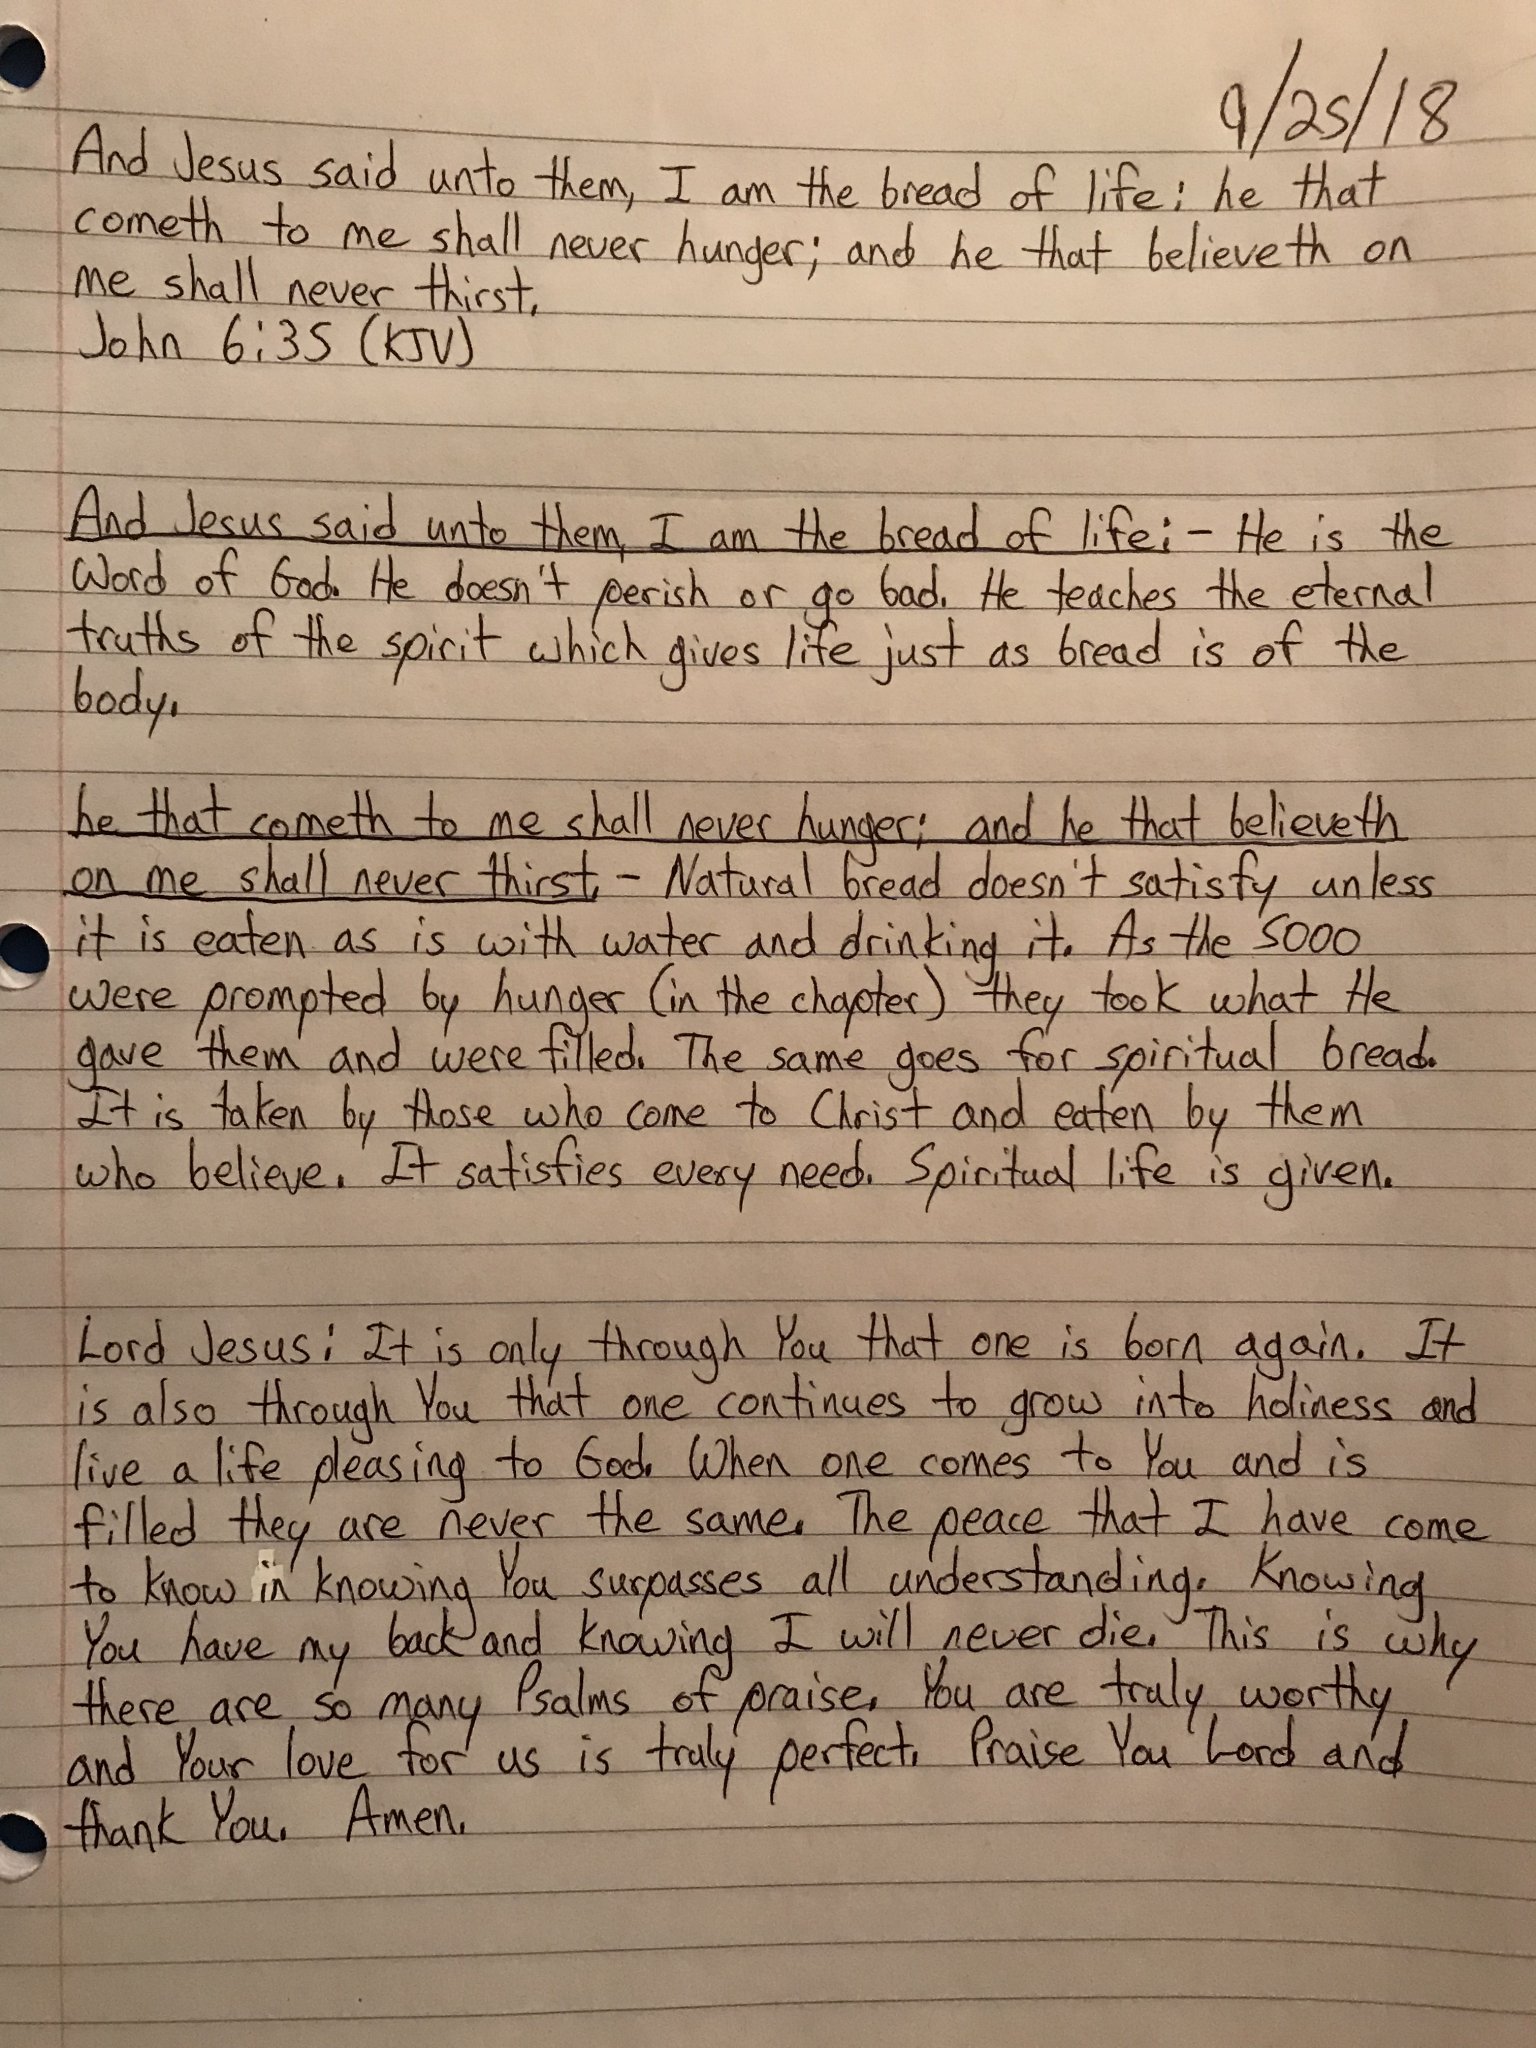 9/25/18
And Jesus said unto them, I am the bread of life: he that
cometh to me shall never hunger; and he that believeth on
me shall never thirst.
John 6:35 (KJV)
And Jesus said unto them, I am the bread of life: - He is the
Word of God. He doesn't perish or go bad. He teaches the eternal
truths of the spirit which gives life just as bread is of the
body.
he that cometh to me shall never hunger; and he that believeth
on me shall never thirst. - Natural bread doesn't satisfy unless
it is eaten as is with water and drinking it. As the 5000
were prompted by hunger (in the chapter) they took what He
gave them and were filled. The same goes for spiritual bread.
It is taken by those who come to Christ and eaten by them
who believe. It satisfies every need. Spiritual life is given.
Lord Jesus: It is only through You that one is born again. It
is also through You that one continues to grow into holiness and
live a life pleasing to God. When one comes to You and is
filled they are never the same. The peace that I have come
to know in knowing You surpasses all understanding. Knowing
You have my back and knowing I will never die. This is why
there are so many Psalms of praise. You are truly worthy
and Your love for us is truly perfect. Praise You Lord and
thank You. Amen.